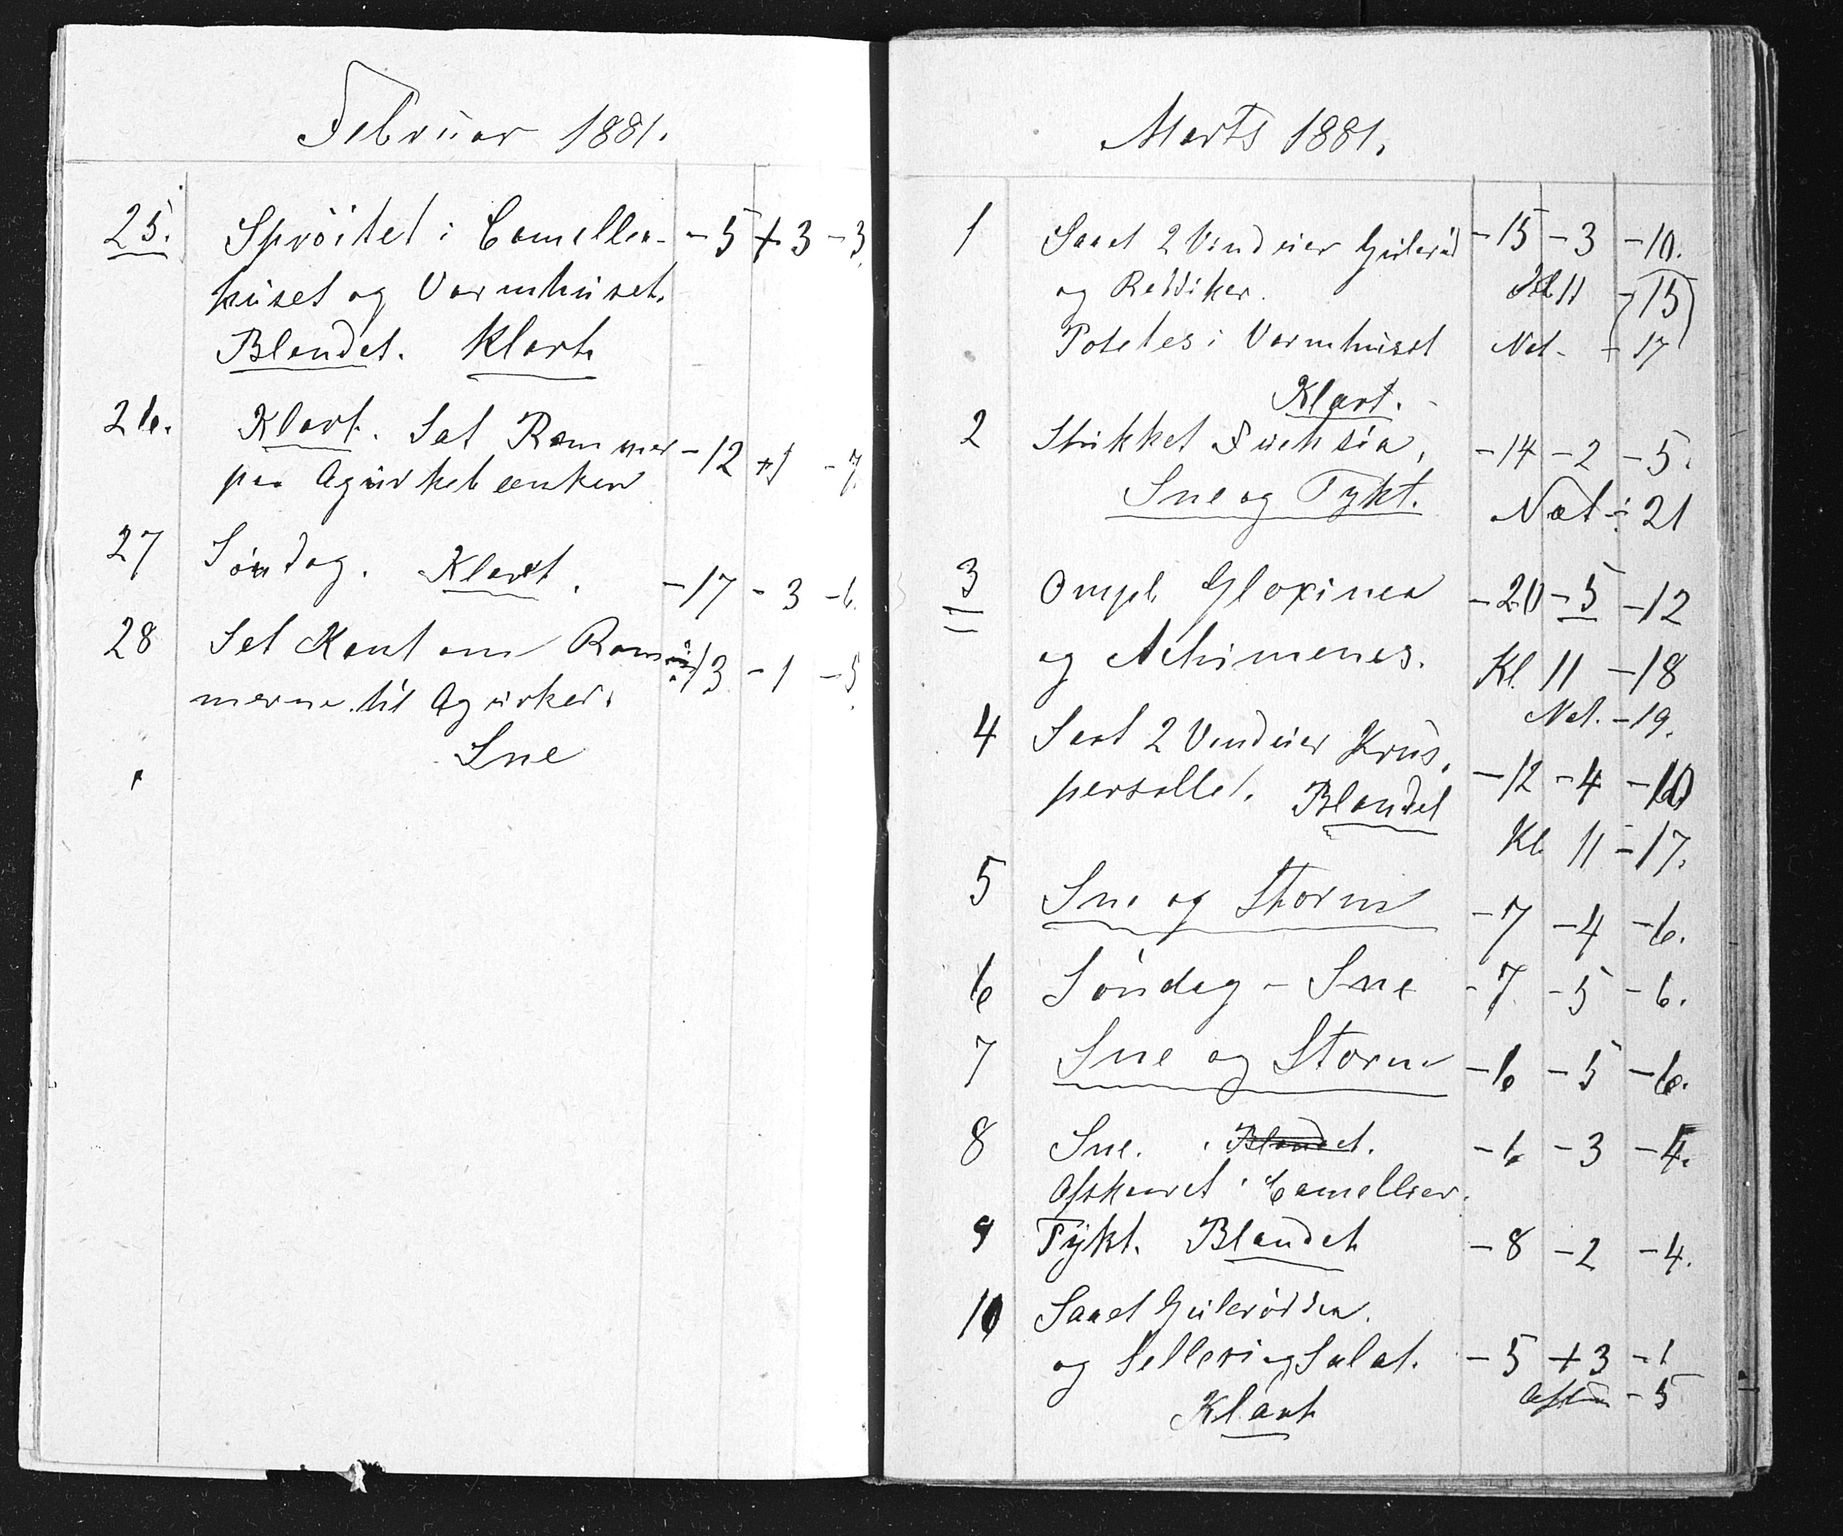 Februar 1881.
25. Sprøitet i Camellia- - 5 + 3 - 3.
huset og Varmhuset.
Blandet. Klart.
26. Klart. Sat Rammer - 12 + 1 - 7.
paa Agurkebænken
27 Søndag. Klart. - 17 - 3 - 6.
28 Sat Kant om Ram- - 13 - 1 - 5
merne til Agurker.
Sne
Marts 1881.
1 Saaet 2 Vinduer Gulerød - 15 - 3 - 10.
og Reddiker. Kl 11 - 15
Potetes i Varmhuset Nat. - 17
Klart.
2 Stikket Fuchsia. - 14 - 2 - 5.
Sne og Tykt. Nat ÷ 21
3 Ompl. Gloxinea - 20 - 5 - 12
og Achimenes. Kl. 11 - 18
Nat. - 19.
4 Saat 2 Vinduer Krus. - 12 - 4 - 10
persille. Blandet
Kl. 11 - 17.
5 Sne og Storm - 7 - 4 - 6.
6 Søndag - Sne - 7 - 5 - 6.
7 Sne og Storm - 6 - 5 - 6.
8 Sne. Blandet. - 6 - 3 - 4.
Afskaaret Camellier.
9 Tykt. Blandet - 8 - 2 - 4.
10 Saaet Gulerødder.
og Selleri og Salat. - 5 + 3 - 1
Klart Aften - 5